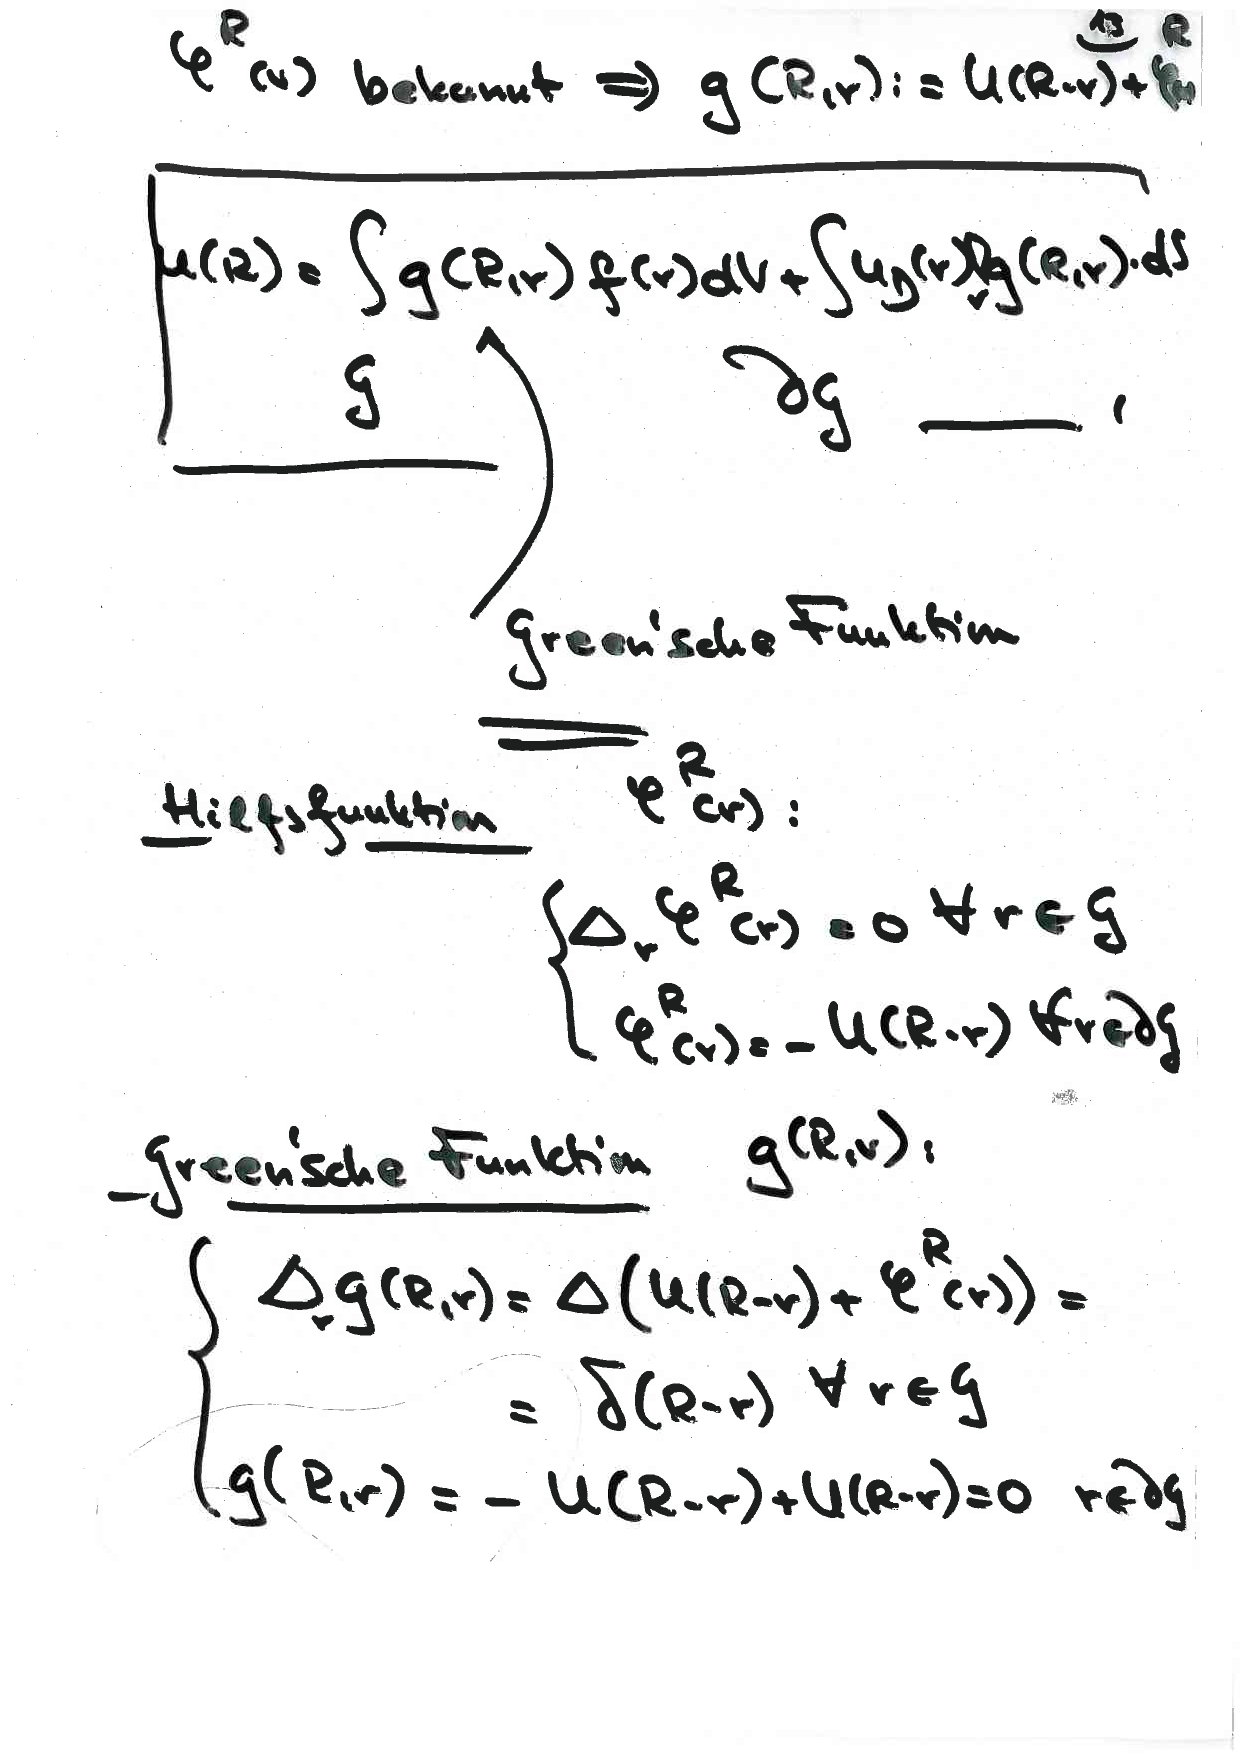 13
φ^R(r) bekannt ⇒ g(R,r) := U(R-r) + φ^R(r)
u(R) = ∫_G g(R,r) f(r) dV + ∫_∂G u_D(r) ∇_r g(R,r) · dS
Green'sche Funktion
Hilfsfunktion φ^R(r) :
Δ_r φ^R(r) = 0 ∀ r ∈ G
φ^R(r) = - U(R-r) ∀ r ∈ ∂G
Green'sche Funktion g(R,r) :
Δ_r g(R,r) = Δ(U(R-r) + φ^R(r)) =
= δ(R-r) ∀ r ∈ G
g(R,r) = - U(R-r) + U(R-r) = 0 r ∈ ∂G